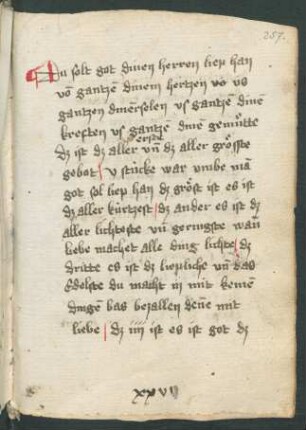 257.
Du solt got dinen herren liep han
vō gantzē dinem hertzen vō vs
gantzen dinērselen vs gantzēn dinē
kreften vs gantzē dinē gemuͦtte
dz ist dz aller erste vn̄ dz aller groͤsste
gebot / v stücke war vmbe mā
got sol liep han dz groͤst ist es ist
dz aller kürtzest / dz ander es ist dz
aller lichteste vn̄ geringste wan̄
liebe machet alle ding lichte / dz
dritte es ist dz liepliche vn̄ das
Edelste du macht in mit keinē
dingē bas bezallen denē mit
liebe / dz iiii ist es ist got dz
xxvii